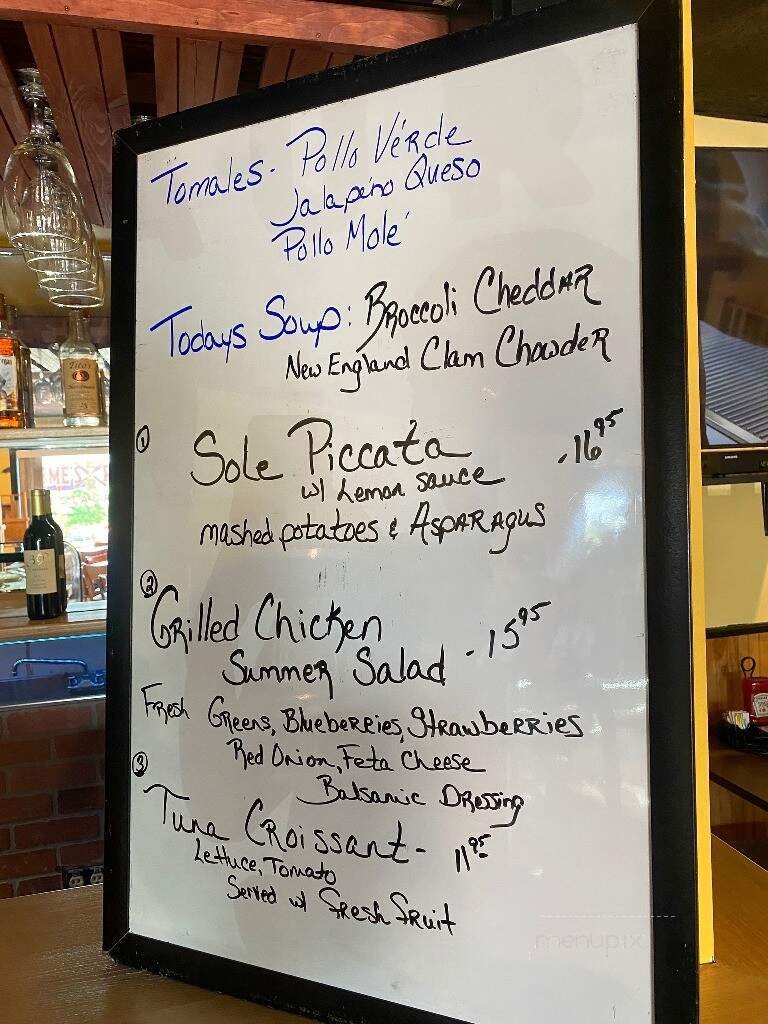 Tomales - Pollo Vérde
Jalapeño Queso
Pollo Molé
Todays Soup: Broccoli Cheddar
New England Clam Chowder
① Sole Piccata - 16.95
w/ Lemon sauce
mashed potatoes & Asparagus
② Grilled Chicken
Summer Salad - 15.95
Fresh Greens, Blueberries, Strawberries
Red Onion, Feta Cheese
Balsamic Dressing
③ Tuna Croissant - 11.95
Lettuce, Tomato
Served w/ Fresh Fruit
menupix
Tito's
SAMSUNG